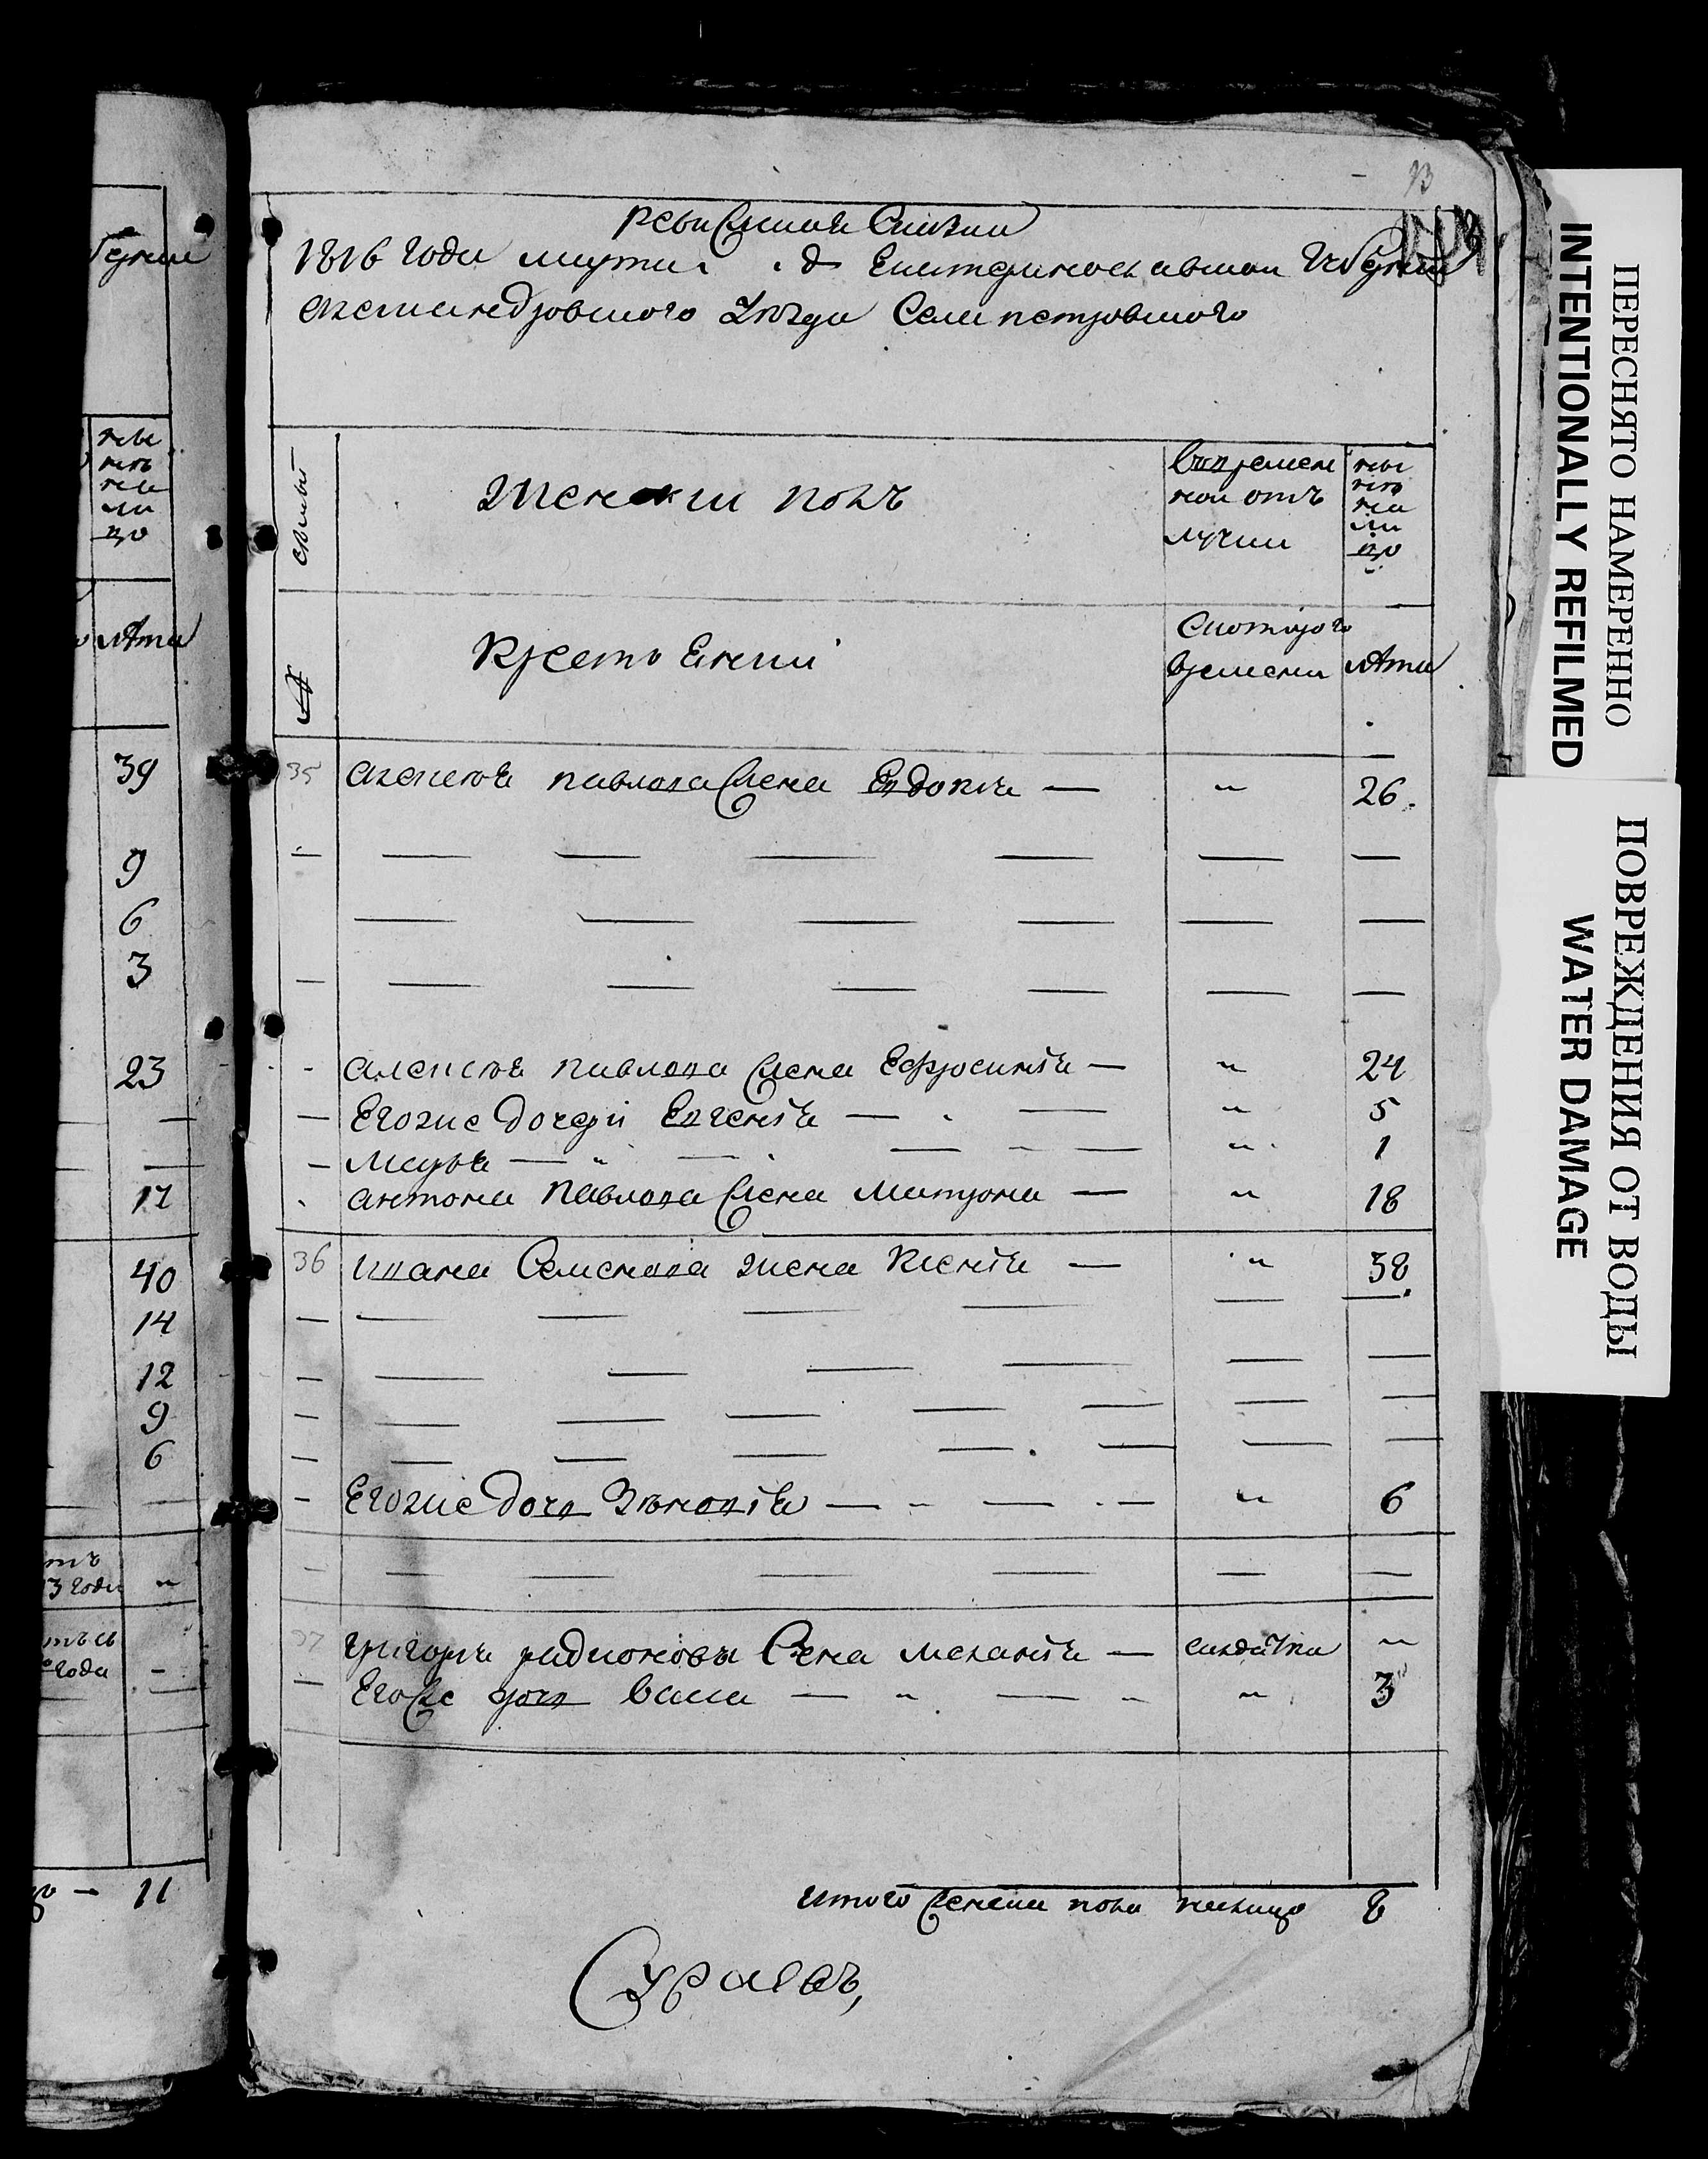 93
ревизская сказка
1816 года марта Екатеринославской Губернии
александровского Уезда Села петровского
семьи
женски полъ
въ времен
ной отъ
лучки
ны
не
на
ли
цо
№
Крестьянии
Скоторого
времени
лѣта
35 алексея павлова жена Евдокия — " 26.
— алексея павлова жена Ефросиния — " 24
— Егоже дочери Евгения — " 5
— Марья — " 1
антона павлова жена Матрона — " 18
36 ивана Семенова жена Ксения — " 38
— Егоже дочь Зѣновия — " 6
37 григорья радионова жена мелания — солдатка "
— Егоже дочь Васса — " 3
итого женска пола налицо 8
губернии
ны
не
на
ли
цо
лѣта
39
9
6
3
23
17
40
14
12
9
6
3 годи "
годи -
цо — 11
ПЕРЕСНЯТО НАМЕРЕННО
INTENTIONALLY REFILMED
ПОВРЕЖДЕНИЯ ОТ ВОДЫ
WATER DAMAGE